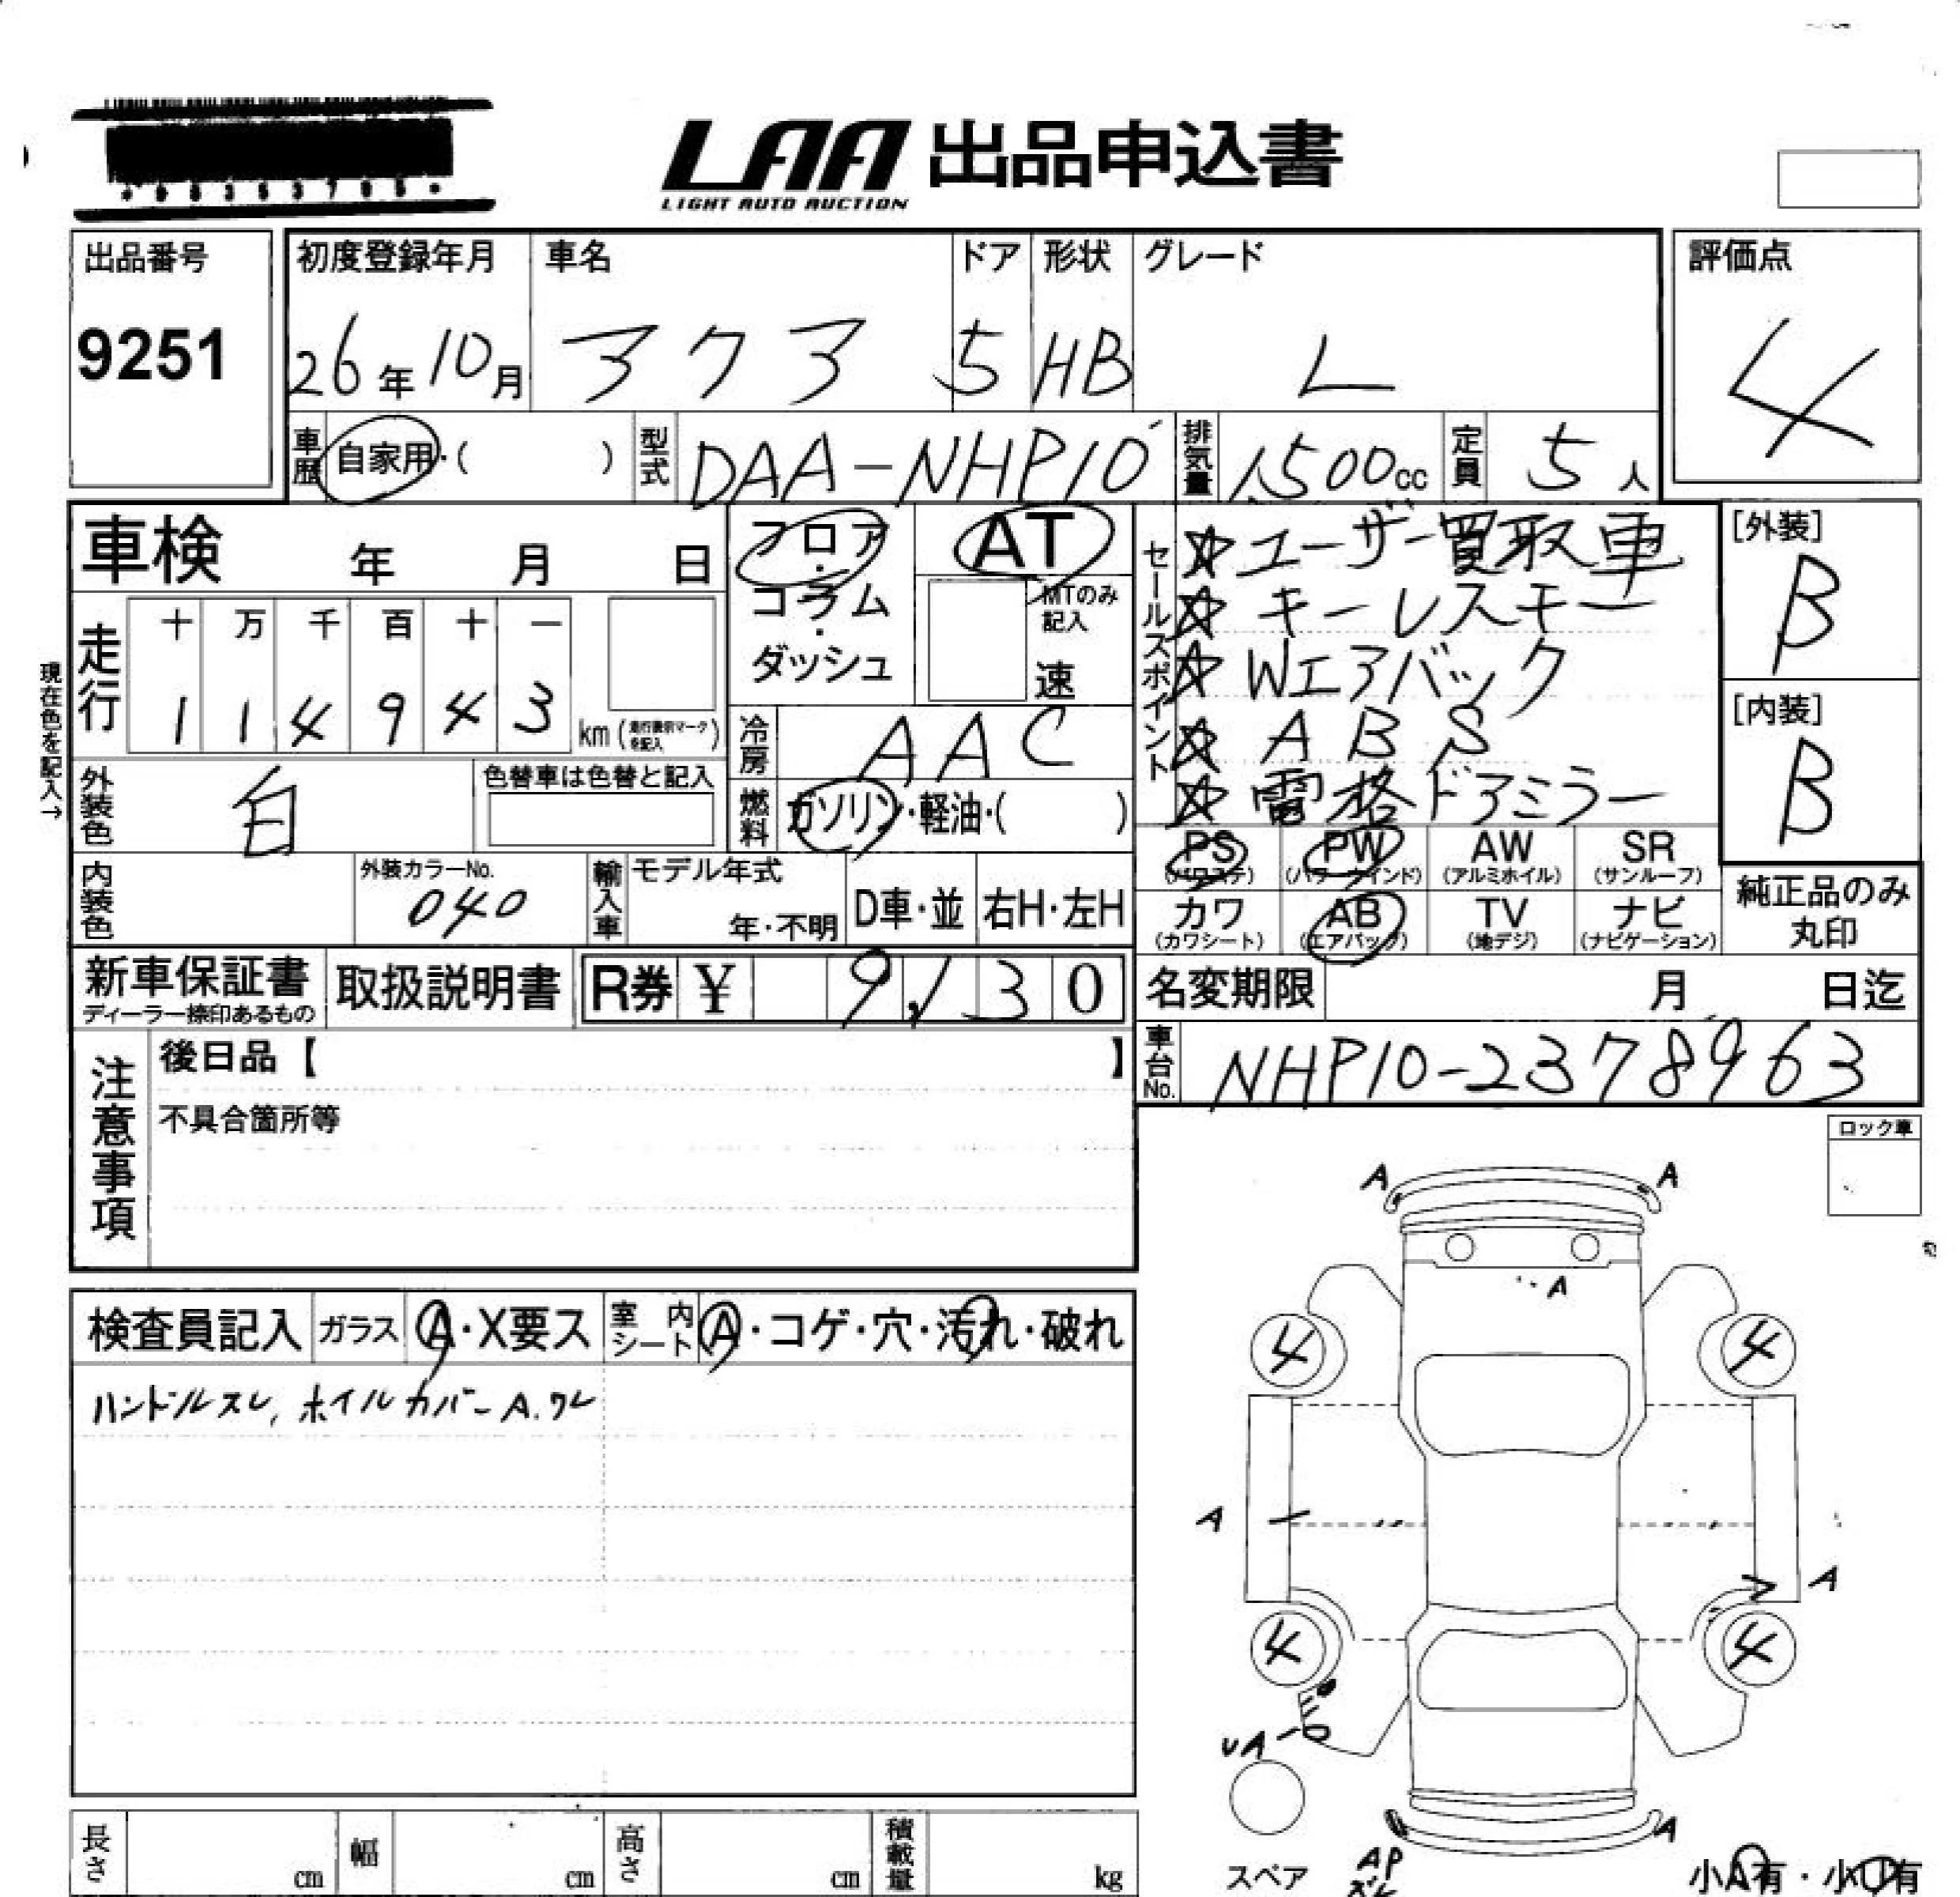 LAA 出品申込書
LIGHT AUTO AUCTION
出品番号
9251
初度登録年月 車名 ドア 形状 グレード
26年10月 アクア 5 HB L
評価点
4
車歴 自家用・( ) 型式 DAA-NHP10 排気量 1,500cc 定員 5人
車検 年 月 日
フロア・コラム・ダッシュ
AT
MTのみ記入
速
セールスポイント
☆ユーザー買取車
☆キーレスキー
☆Wエアバック
☆ABS
☆電格ドアミラー
[外装]
B
[内装]
B
現在色を記入→
走行 十 万 千 百 十 一
1 1 4 9 4 3 km
冷房 AAC
外装色 白 色替車は色替と記入
燃料 ガソリン・軽油・( )
PS PW AW SR
(パワステ) (パワーウインド) (アルミホイル) (サンルーフ)
カワ AB TV ナビ
(カワシート) (エアバッグ) (地デジ) (ナビゲーション)
純正品のみ
丸印
内装色 外装カラーNo. 040 輸入車 モデル年式 年・不明 D車・並 右H・左H
新車保証書 取扱説明書 R券 ¥ 9,130
ディーラー捺印あるもの
名変期限 月 日迄
車台No. NHP10-2378963
注意事項
後日品【 】
不具合箇所等
ロック車
検査員記入 ガラス A・X要ス 室内シート A・コゲ・穴・汚れ・破れ
ハンドルスレ, ホイルカバーA.ワレ
A A
A
4 4
A
A
4 4
UA
A
AP
スペア
小A有・小U有
長さ cm 幅 cm 高さ cm 積載量 kg